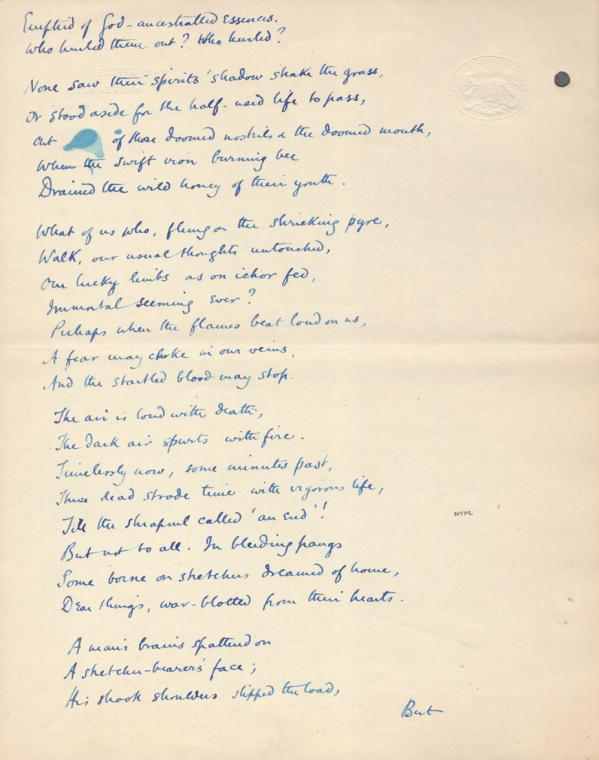 Emptied of God-ancestralled Essences.
Who hurled them out? Who hurled?
None saw their spirits' shadow shake the grass,
Or stood aside for the half-used life to pass,
Out of those doomed nostrils & the doomed mouth,
When the swift iron burning bee
Drained the wild honey of their youth.
What of us who, flung on the shrieking pyre,
Walk, our usual thoughts untouched,
Our lucky limbs as on ichor fed,
Immortal seeming ever?
Perhaps when the flames beat loud on us,
A fear may choke in our veins,
And the startled blood may stop.
The air is loud with death,
The dark air spurts with fire.
Timelessly now, some minutes past,
These dead strode time with vigorous life,
Till the shrapnel called 'an End'!
But not to all. In bleeding pangs
Some borne on stretchers dreamed of home,
Dear things, war-blotted from their hearts.
NYPL
A man's brains spattered on
A stretcher-bearer's face;
His shook shoulders slipped the load,
But